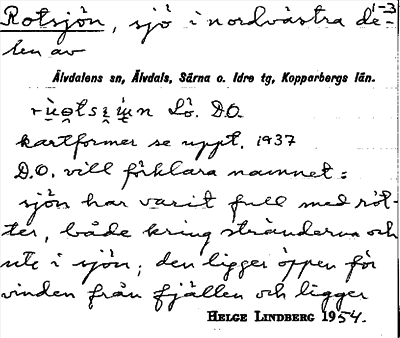 Rotsjön, sjö i nordvästra de- 1-3
len av
Älvdalens sn, Älvdals, Särna o. Idre tg, Kopparbergs län.
Lö. D.O.
kartformer se uppt. 1937
D.O. vill förklara namnet:
sjön har varit full med röt-
ter, både kring stränderna och
ute i sjön; den ligger öppen för
vinden från fjällen och ligger
HELGE LINDBERG 1954.